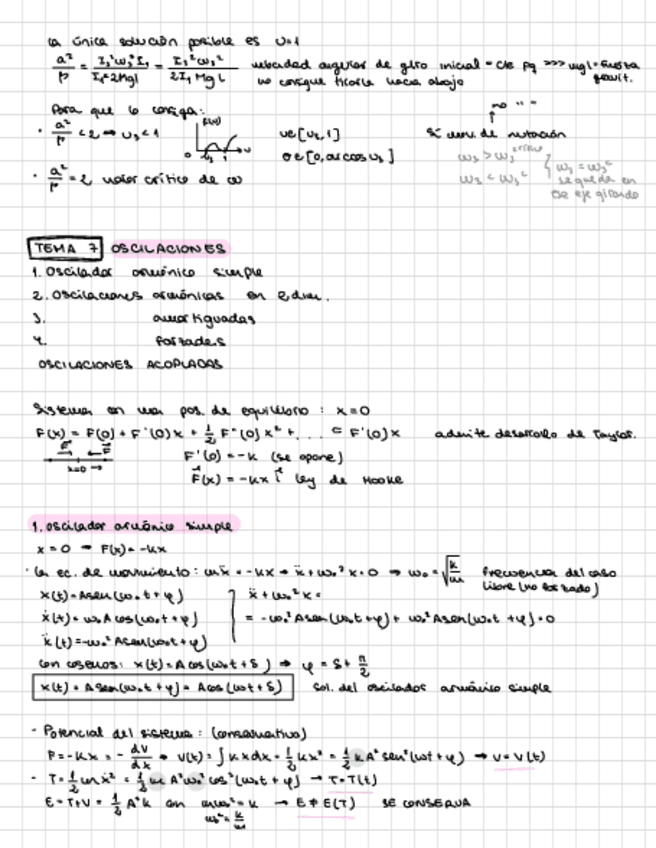 la única solución posible es u=1
a²/p = I₃²ω₃²I₁/I₁²2Mgl = I₃²ω₃²/2I₁Mgl velocidad angular de giro inicial = cte >>> mgl = fuerza gravit.
no consigue tirarle hacia abajo
Para que lo consiga:
no " "
· a²/p < 2 → u₂ < 1 f(u) u∈[u₂,1] Sí mov. de nutación
0 u₂ 1 u θ∈[0, arccos u₂]
ω₃ > ω₃ crítico
ω₃ < ω₃ᶜ
ω₃ = ω₃ᶜ se queda en ese eje girando
· a²/p = 2 valor crítico de ω
TEMA 7 OSCILACIONES
1. Oscilador armónico simple
2. Oscilaciones armónicas en 2 dim.
3. amortiguadas
4. forzadas
OSCILACIONES ACOPLADAS
Sistema en una pos. de equilibrio : x=0
F(x) = F(0) + F'(0)x + ½ F''(0)x² + ... ≃ F'(0)x admite desarrollo de Taylor.
x=0 F'(0) = -k (se opone)
F(x) = -kx i ley de Hooke
1. Oscilador armónico simple
x = 0 → F(x) = -kx
· la ec. de movimiento : mẍ = -kx → ẍ + ω₀²x = 0 → ω₀ = √(k/m) frecuencia del caso libre (no forzado)
x(t) = A sen(ω₀t + φ) ẍ + ω₀²x =
ẋ(t) = ω₀A cos(ω₀t + φ) = -ω₀²A sen(ω₀t + φ) + ω₀²A sen(ω₀t + φ) = 0
ẍ(t) = -ω₀²A sen(ω₀t + φ)
con cosenos: x(t) = A cos(ω₀t + δ) → φ = δ + π/2
x(t) = A sen(ω₀t + φ) = A cos(ωt + δ) sol. del oscilador armónico simple
- Potencial del sistema : (conservativo)
F = -kx = - dV/dx → V(t) = ∫kxdx = ½kx² = ½kA² sen²(ωt + φ) → V = V(t)
- T = ½mẋ² = ½mA²ω₀² cos²(ω₀t + φ) → T = T(t)
E = T + V = ½A²k con mω₀² = k → E ≠ E(T) SE CONSERVA
ω₀² = k/m